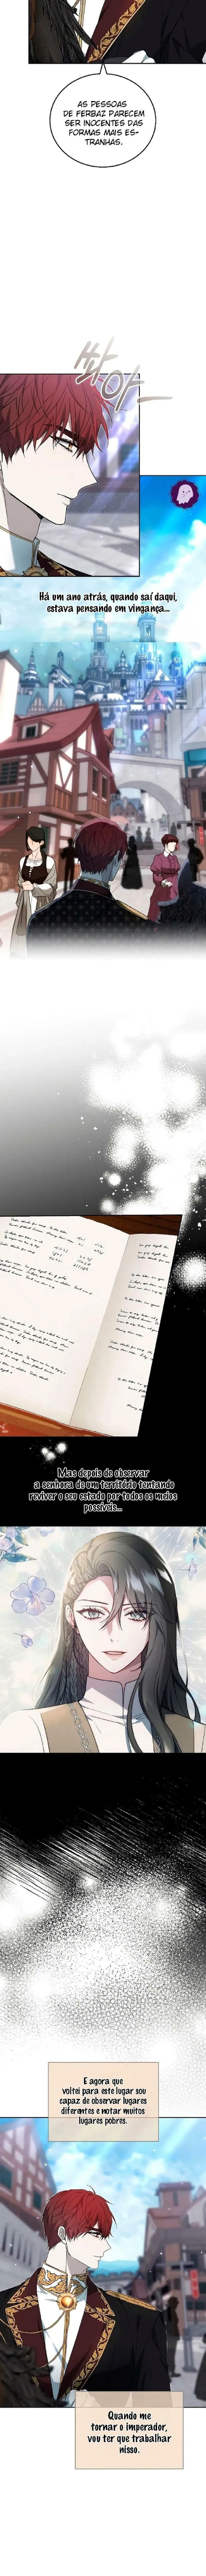 AS PESSOAS
DE FERBAZ PARECEM
SER INOCENTES DAS
FORMAS MAIS ES-
TRANHAS.
쏴아—
Há um ano atrás, quando saí daqui,
estava pensando em vingança...
Mas depois de observar
a senhora de um território tentando
reviver o seu estado por todos os meios
possíveis...
E agora que
voltei para este lugar sou
capaz de observar lugares
diferentes e notar muitos
lugares pobres.
Quando me
tornar o imperador,
vou ter que trabalhar
nisso.